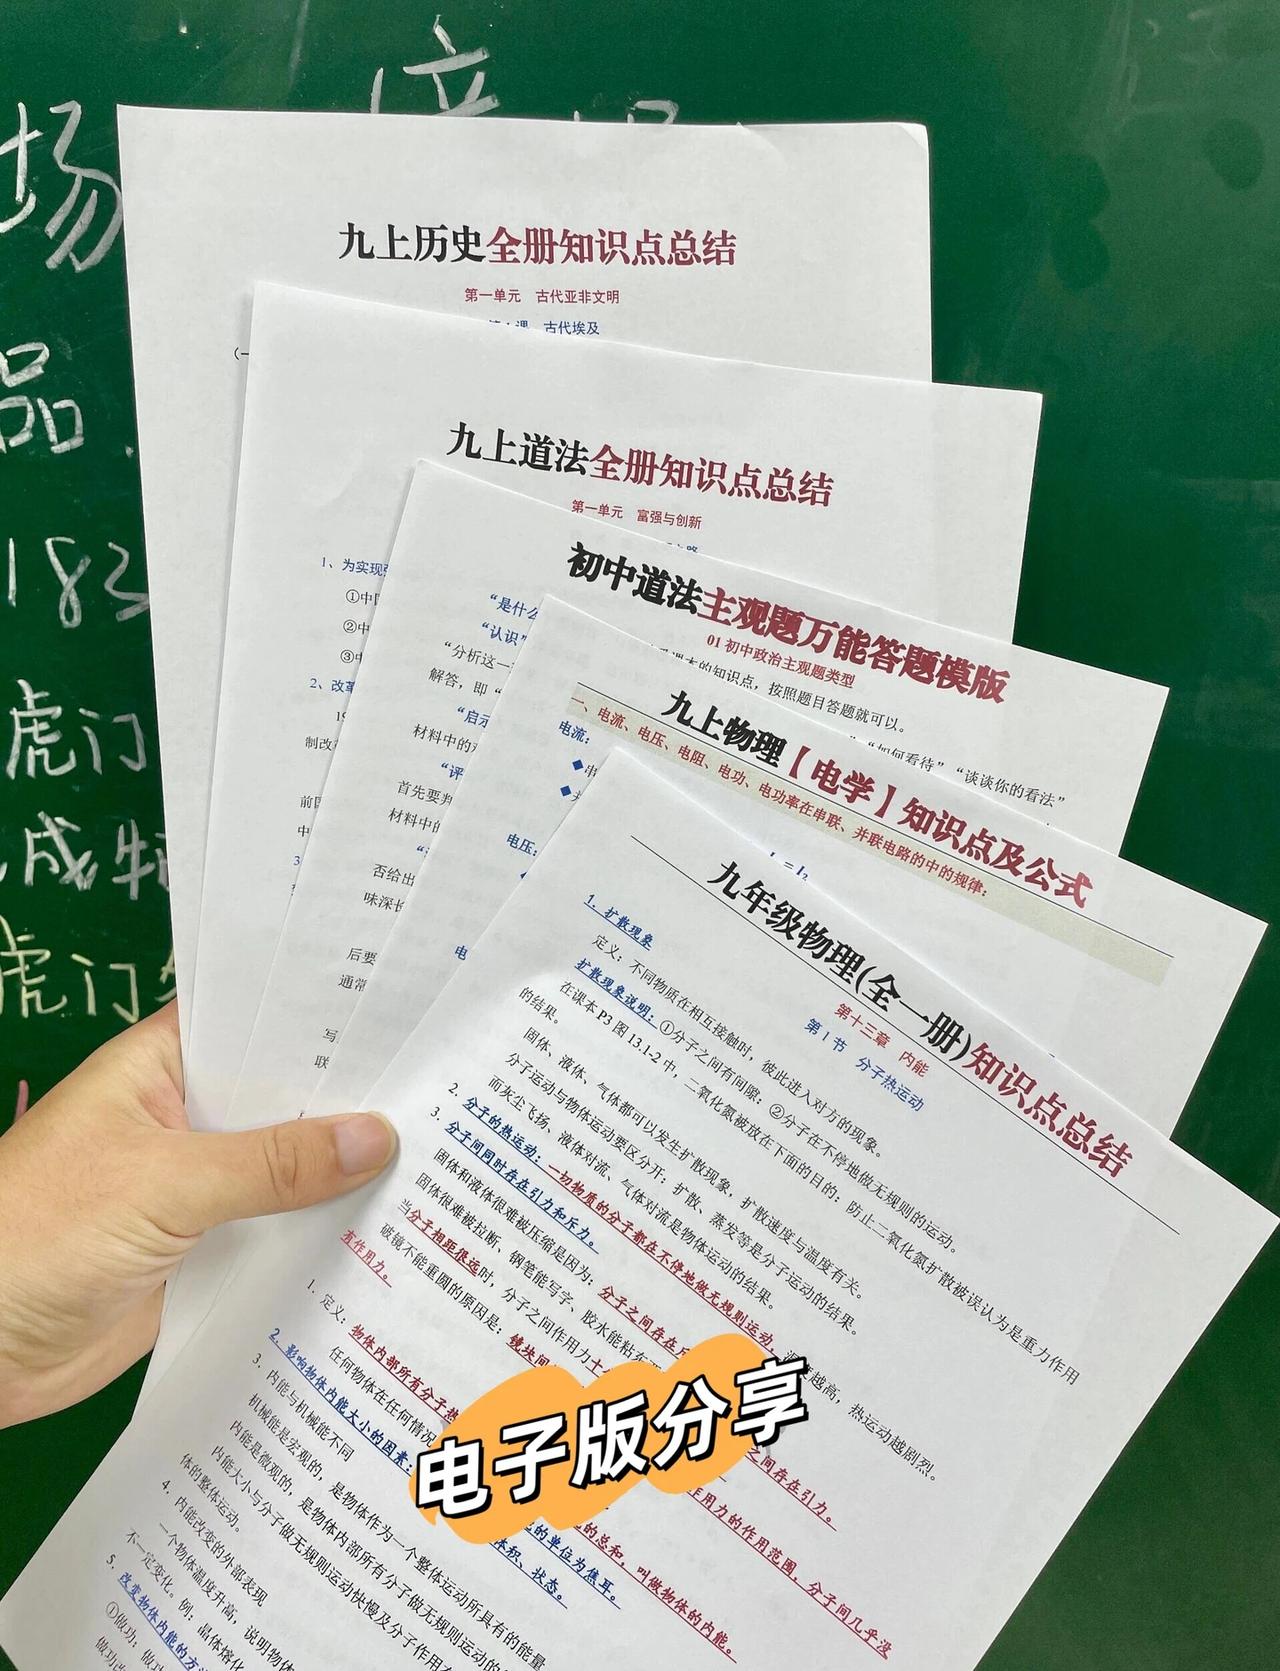 场
品
183
虎门
成
虎门
九上历史全册知识点总结
第一单元 古代亚非文明
课 古代埃及
九上道法全册知识点总结
第一单元 富强与创新
1、为实现
①中
②中
③中
2、改革
制改
初中道法主观题万能答题模版
01 初中政治主观题类型
课本的知识点，按照题目答题就可以。
“是什么
“认识”
“如何看待” “谈谈你的看法”
“分析这一
解答，即“
“启示
材料中的
“评
首先要判
材料中的
否给出
味深长
后要
通常
写
联
九上物理【电学】知识点及公式
一、电流、电压、电阻、电功、电功率在串联、并联电路的中的规律：
电流：
电压：
九年级物理(全一册)知识点总结
第十三章 内能
第1节 分子热运动
1. 扩散现象
定义：不同物质在相互接触时，彼此进入对方的现象。
扩散现象说明：①分子之间有间隙；②分子在不停地做无规则的运动。
在课本 P3 图 13.1-2 中，二氧化氮被放在下面的目的：防止二氧化氮扩散被误认为是重力作用
的结果。
固体、液体、气体都可以发生扩散现象，扩散速度与温度有关。
分子运动与物体运动要区分开：扩散、蒸发等是分子运动的结果。
而灰尘飞扬、液体对流、气体对流是物体运动的结果。
2. 分子的热运动：一切物质的分子都在不停地做无规则运动，温度越高，热运动越剧烈。
3. 分子间同时存在引力和斥力。
固体和液体很难被压缩是因为：分子之间存在斥
固体很难被拉断、钢笔能写字、胶水能粘东 之间存在引力。
当分子相距很远时，分子之间作用力十 作用力的作用范围，分子间几乎没
有作用力。
破镜不能重圆的原因是：镜块间
1. 定义：物体内部所有分子热 的总和，叫做物体的内能。
任何物体在任何情况 的单位为焦耳。
2. 影响物体内能大小的因素： 体积、状态。
3. 内能与机械能不同
机械能是宏观的，是物体作为一个整体运动所具有的能量
内能是微观的，是物体内部所有分子做无规则运动的
内能大小与分子做无规则运动快慢及分子作用
体的整体运动。
4. 内能改变的外部表现
一个物体温度升高，说明物体
不一定变化。例：晶体熔化
5. 改变物体内能的方
①做功：做功
做功
电子版分享